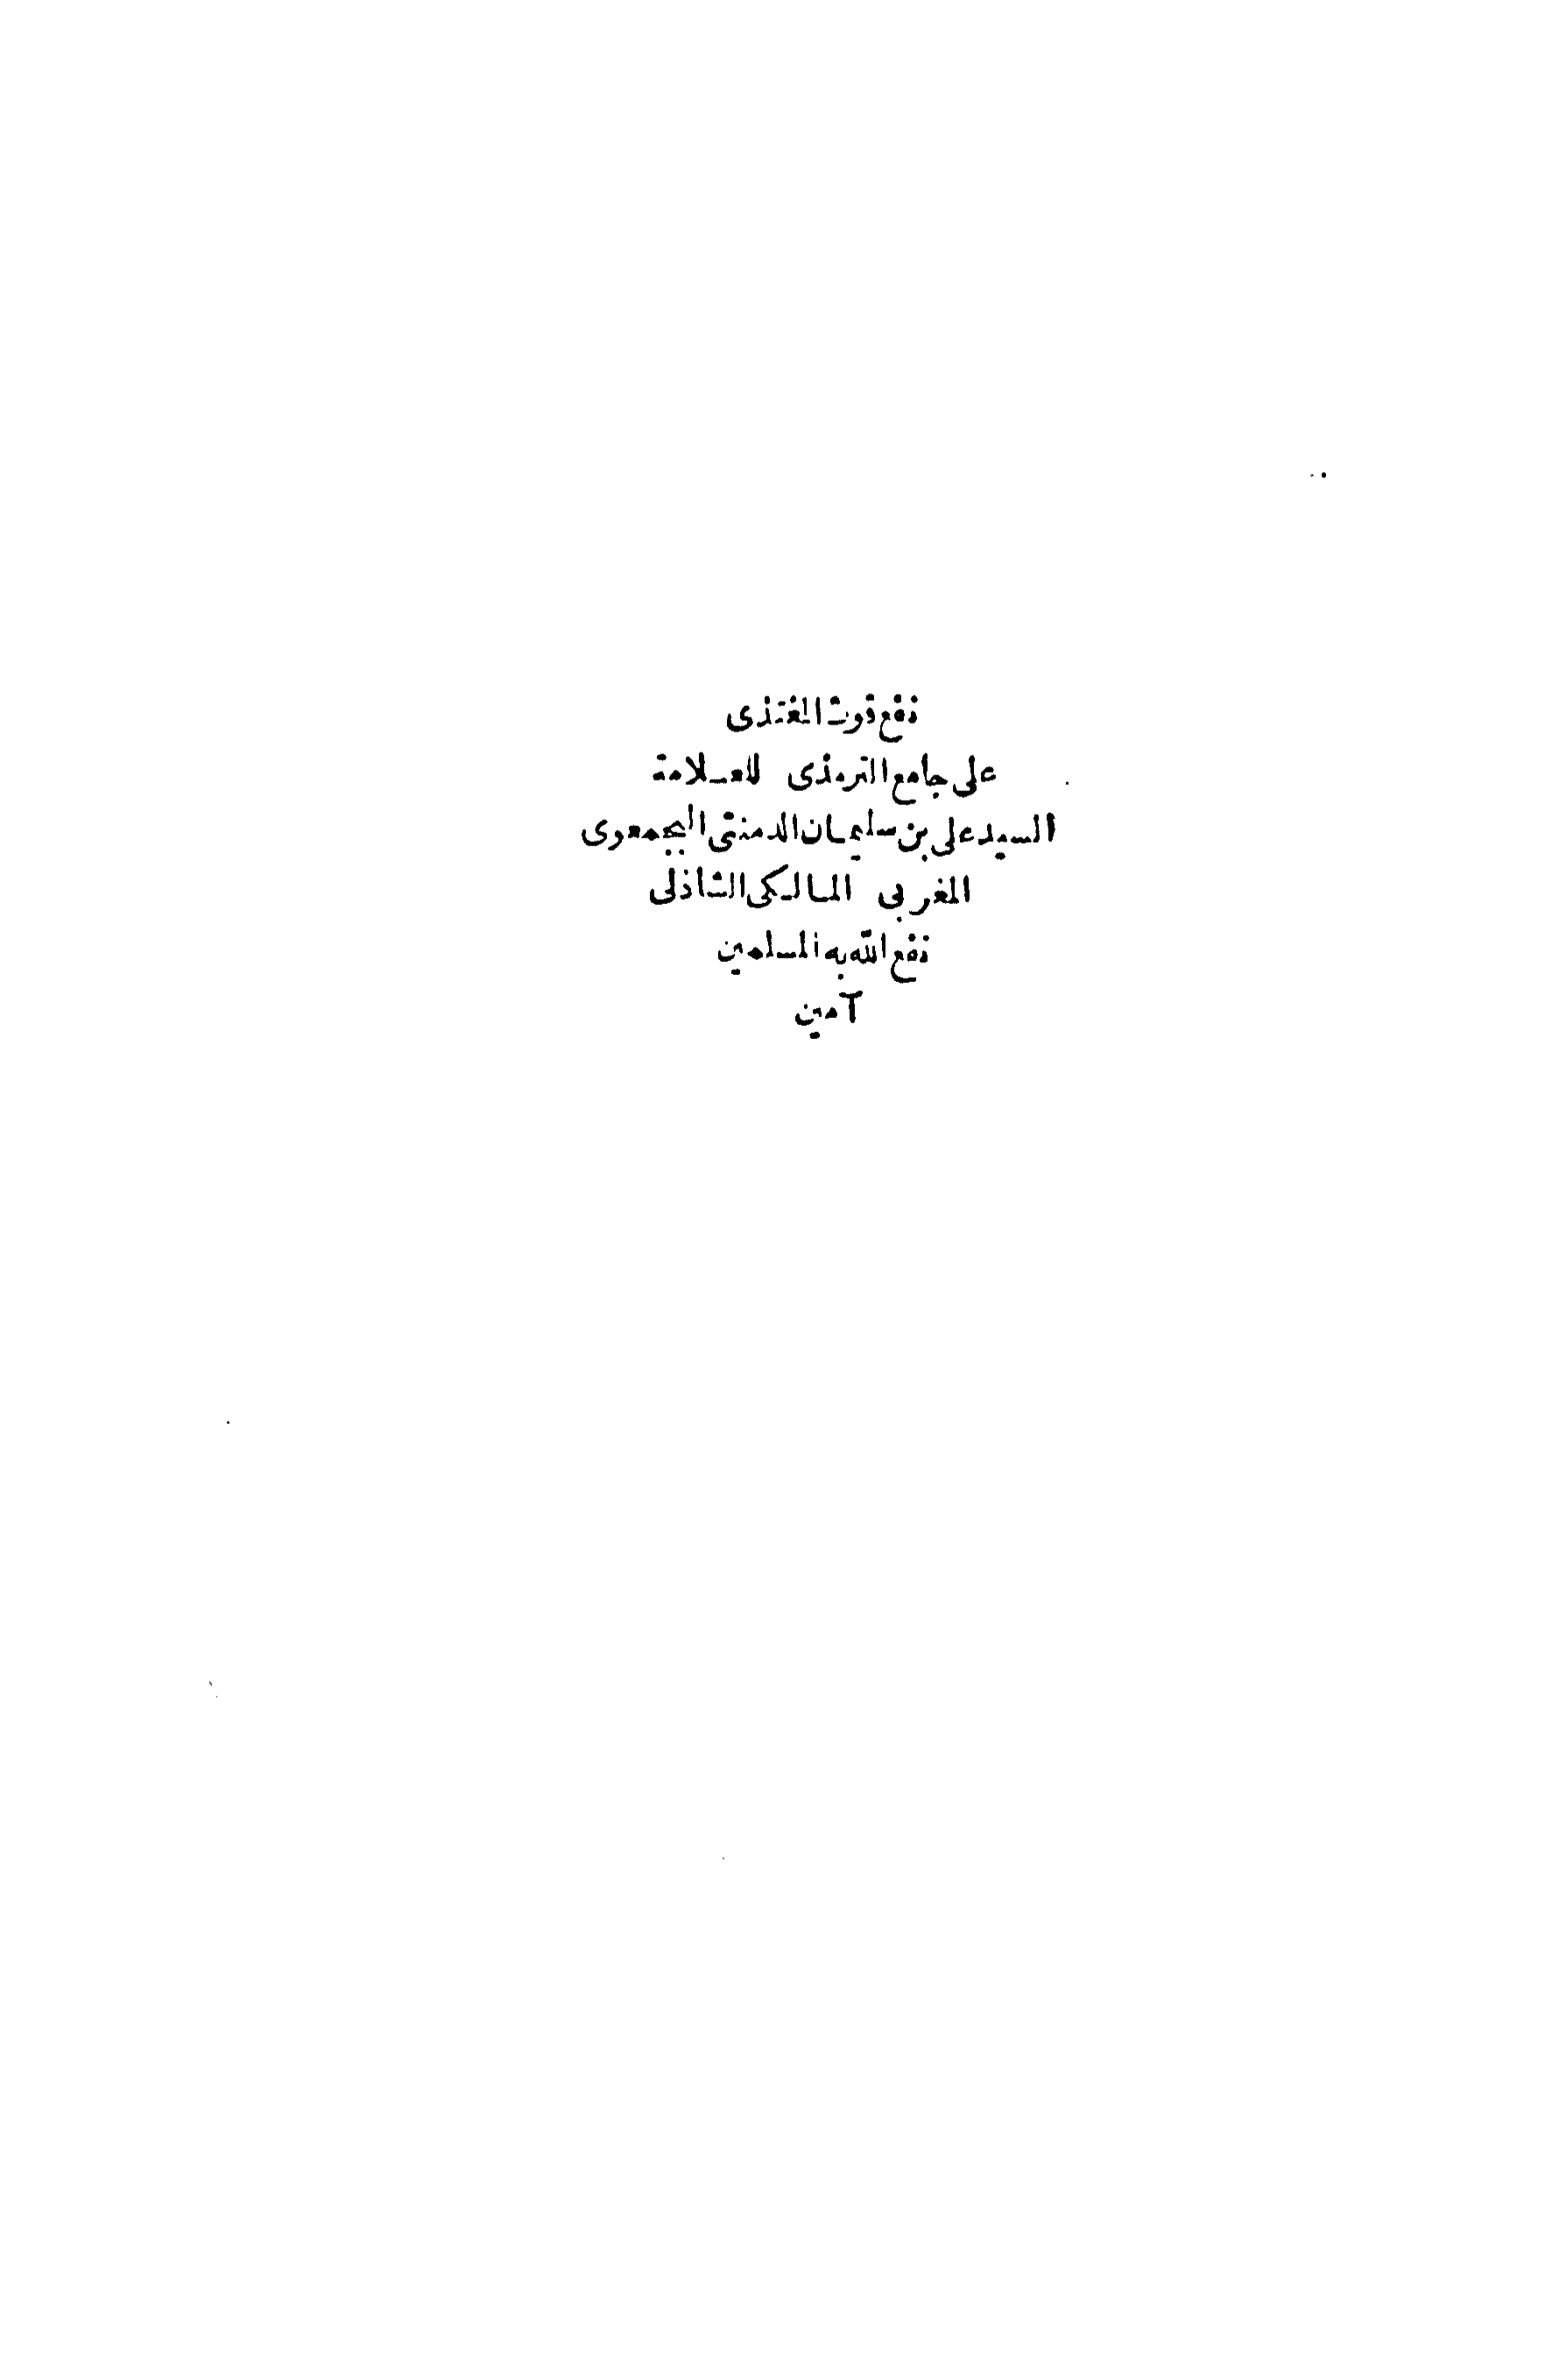 نفع قوت المغتذى
على جامع الترمذى للعلامة
السيد على بن سليمان الدمنتى البجمعوى
المغربى المالكى الشاذلى
نفع الله به المسلمين
آمين